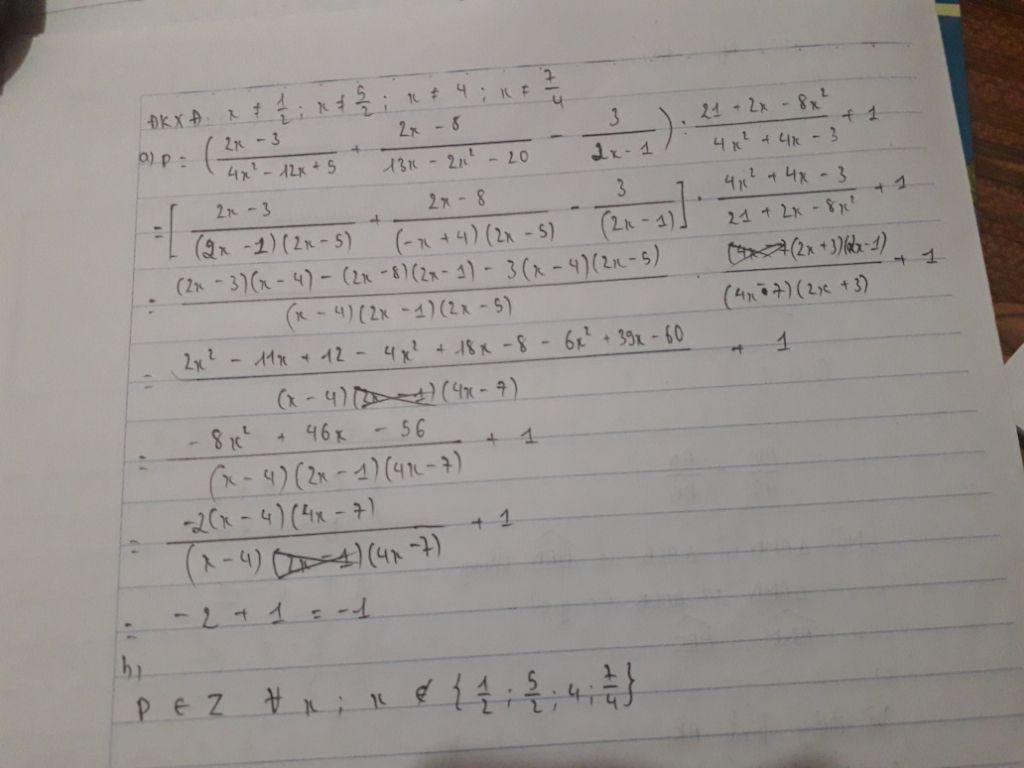 ĐKXĐ: x ≠ 1/2 ; x ≠ 5/2 ; x ≠ 4 ; x ≠ 7/4
a) P = ( (2x - 3)/(4x² - 12x + 5) + (2x - 8)/(13x - 2x² - 20) - 3/(2x - 1) ) : (21 + 2x - 8x²)/(4x² + 4x - 3) + 1
= [ (2x - 3)/((2x - 1)(2x - 5)) + (2x - 8)/((-x + 4)(2x - 5)) - 3/((2x - 1)) ] · (4x² + 4x - 3)/(21 + 2x - 8x²) + 1
= ((2x - 3)(x - 4) - (2x - 8)(2x - 1) - 3(x - 4)(2x - 5))/((x - 4)(2x - 1)(2x - 5)) ((2x + 3)(2x - 1))/((4x - 7)(2x + 3)) + 1
= (2x² - 11x + 12 - 4x² + 18x - 8 - 6x² + 39x - 60)/((x - 4)(2x - 1)(4x - 7)) + 1
= (-8x² + 46x - 56)/((x - 4)(2x - 1)(4x - 7)) + 1
= (-2(x - 4)(4x - 7))/((x - 4)(2x - 1)(4x - 7)) + 1
= -2 + 1 = -1
b)
P ∈ Z ∀ x ; x ∉ {1/2 ; 5/2 ; 4 ; 7/4}